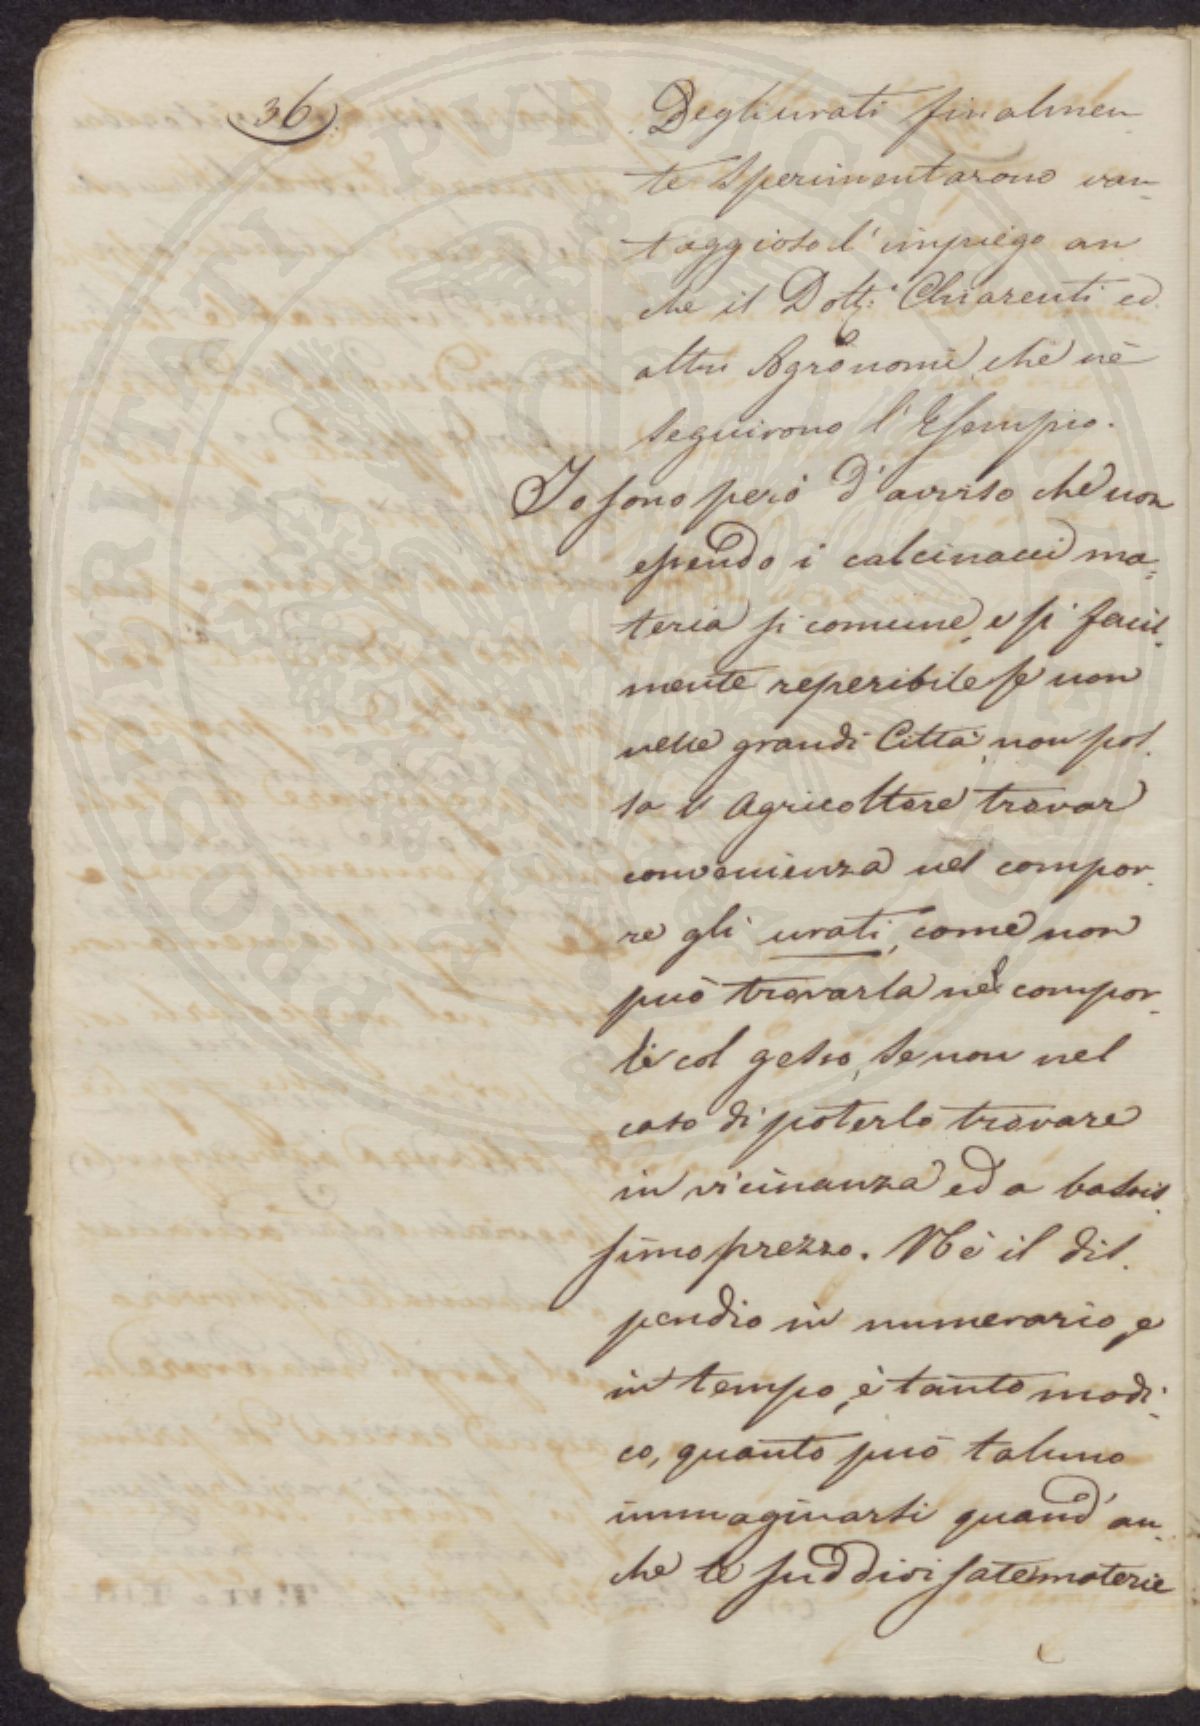 36
Degli urati finalmen
te sperimentarono van-
taggioso l'impiego an
che il Dott.r Chiarenti ed
altri Agronomi che nè
seguirono l'Esempio.
Io sono però d'avviso che non
essendo i calcinacci ma-
teria si comune, e si facil-
mente reperibile se non
nelle grandi Città, non pos-
sa l'Agricoltore trovar
convenienza nel compor-
re gli urati, come non
può trovarla nel compor-
li col gesso, se non nel
caso di poterlo trovare
in vicinanza ed a bassis-
simo prezzo. Nè il dis-
pendio in numerario, e
in tempo, è tanto modi-
co, quanto può taluno
immaginarsi quand'an-
che le suddivisate materie
PROSPERITATI PUBLICAE AUGENDAE